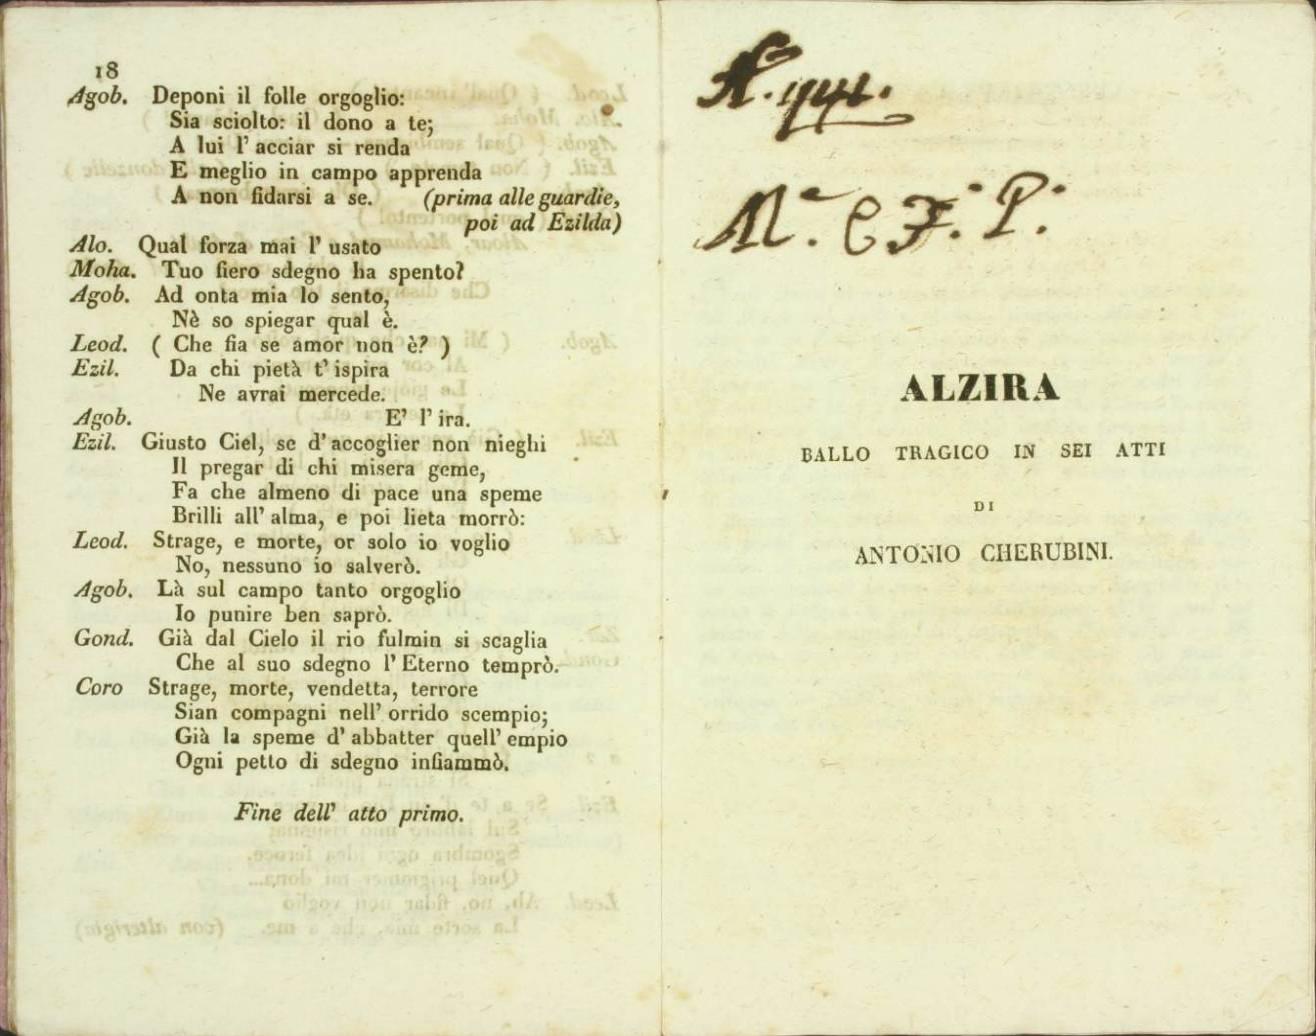 18
Agob. Deponi il folle orgoglio:
Sia sciolto: il dono a te;
A lui l' acciar si renda
E meglio in campo apprenda
A non fidarsi a se. (prima alle guardie,
poi ad Ezilda)
Alo. Qual forza mai l' usato
Moha. Tuo fiero sdegno ha spento?
Agob. Ad onta mia lo sento,
Nè so spiegar qual è.
Leod. ( Che fia se amor non è? )
Ezil. Da chi pietà t' ispira
Ne avrai mercede.
Agob. E' l' ira.
Ezil. Giusto Ciel, se d' accoglier non nieghi
Il pregar di chi misera geme,
Fa che almeno di pace una speme
Brilli all' alma, e poi lieta morrò:
Leod. Strage, e morte, or solo io voglio
No, nessuno io salverò.
Agob. Là sul campo tanto orgoglio
Io punire ben saprò.
Gond. Già dal Cielo il rio fulmin si scaglia
Che al suo sdegno l' Eterno temprò.
Coro Strage, morte, vendetta, terrore
Sian compagni nell' orrido scempio;
Già la speme d' abbatter quell' empio
Ogni petto di sdegno infiammò.
Fine dell' atto primo.
M.a C F. P.
ALZIRA
BALLO TRAGICO IN SEI ATTI
DI
ANTONIO CHERUBINI.